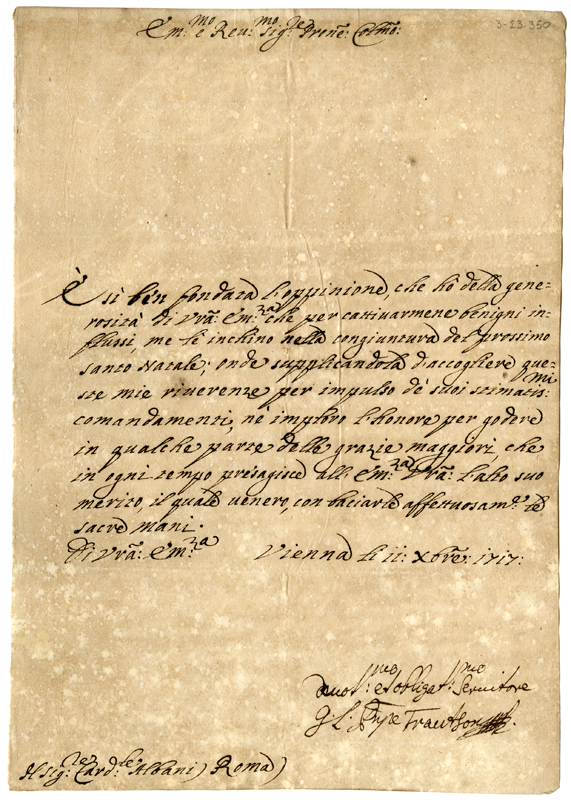 3-23.350
Em:mo e Reu:mo Sig:re Prone: Colmo:
È sì bèn fondata l'oppinione, che hò della gene-
rosità di Vrã: Em:za che per cattivarmene benigni in-
flussi, me le inchino nella congiuntura del prossimo
santo Natale; onde supplicandola d'accogliere que-
ste mie riverenze per impulso de' suoi stimatis:mi
comandamenti, nè imploro l'honore per godere
in qualche parte delle grazie maggiori, che
in ogni tempo presagisce all: Em:za Vrã: l'alto suo
merito, il quale venero, con baciarle affettuosam:te le
sacre mani.
Di Vrã: Em:za Vienna li 11: Xbre: 1717:
Duot:mo et obligat:mo Seruitore
G L: Trautson
Al Sig:re Card:le Albani) Roma)